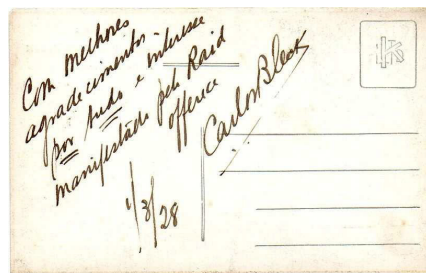 Com melhores
agradecimentos
por tudo e interesse
manifestado pelo Raid
offerece
Carlos Bleck
1/3/28